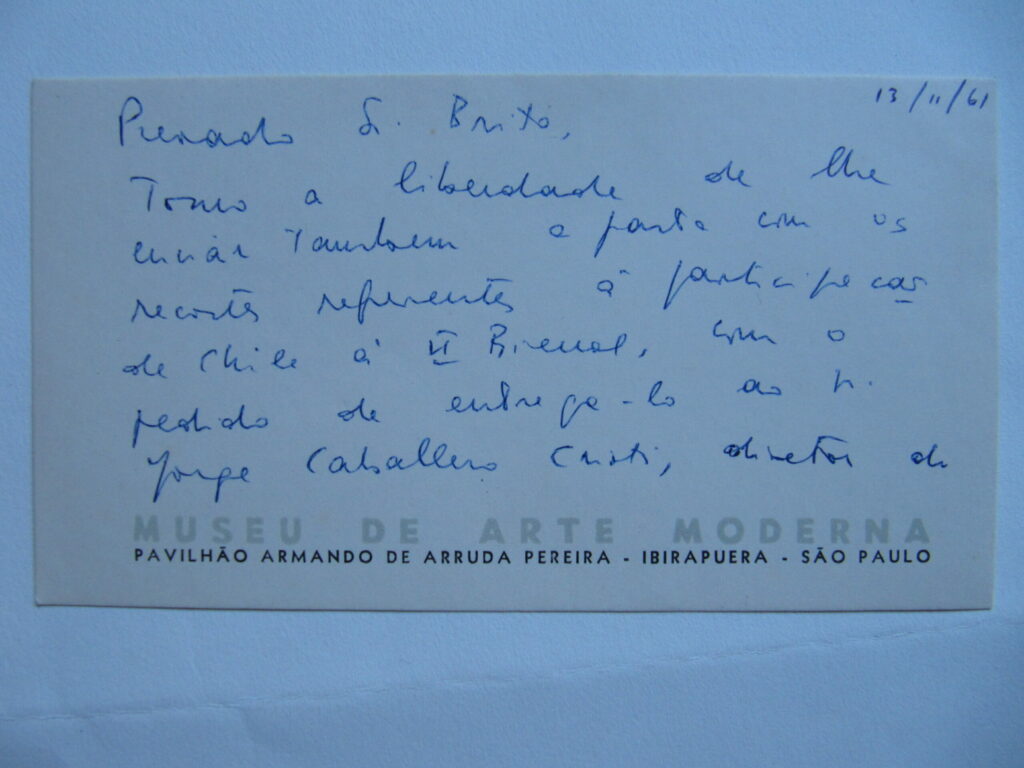 13/11/61
Prezado Sr. Brito,
Tomo a liberdade de lhe
enviar Tambem a pasta com os
recortes referentes à participação
de Chile à VI Bienal, com o
pedido de entrega-lo ao Sr.
Jorge Caballero Cristi, diretor de
MUSEU DE ARTE MODERNA
PAVILHÃO ARMANDO DE ARRUDA PEREIRA - IBIRAPUERA - SÃO PAULO